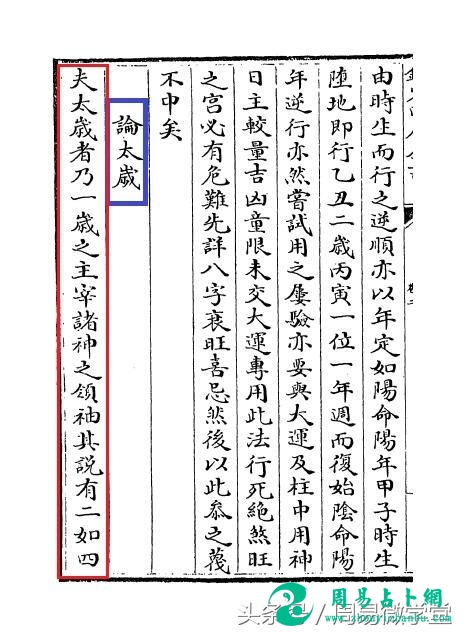 由時生而行之逆順亦以年定如陽命陽年甲子時生
墮地即行乙丑二歲丙寅一位一年週而復始陰命陽
年逆行亦然嘗試用之屢驗亦要與大運及柱中用神
日主較量吉凶童限未交大運專用此法行死絶煞旺
之宮必有危難先詳八字衰旺喜忌然後以此叅之蔑
不中矣
論太歲
夫太歲者乃一歲之主宰諸神之領袖其説有二如四
周易占卜網
头条号/周易微学堂